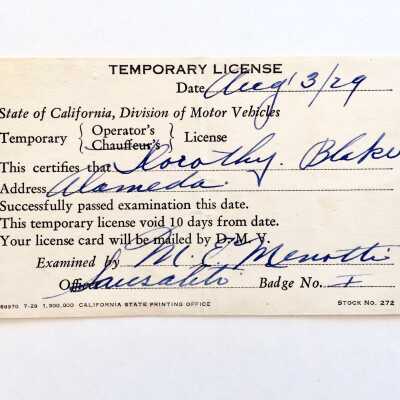 TEMPORARY LICENSE
Date Aug 3/29
State of California, Division of Motor Vehicles
Temporary { Operator's Chauffeur's } License
This certifies that Dorothy. Blake
Address Alameda.
Successfully passed examination this date.
This temporary license void 10 days from date.
Your license card will be mailed by D. M. V.
Examined by M. E. Menotti
Office Sausalito Badge No. I
7-29 1,900,000 CALIFORNIA STATE PRINTING OFFICE STOCK NO. 272